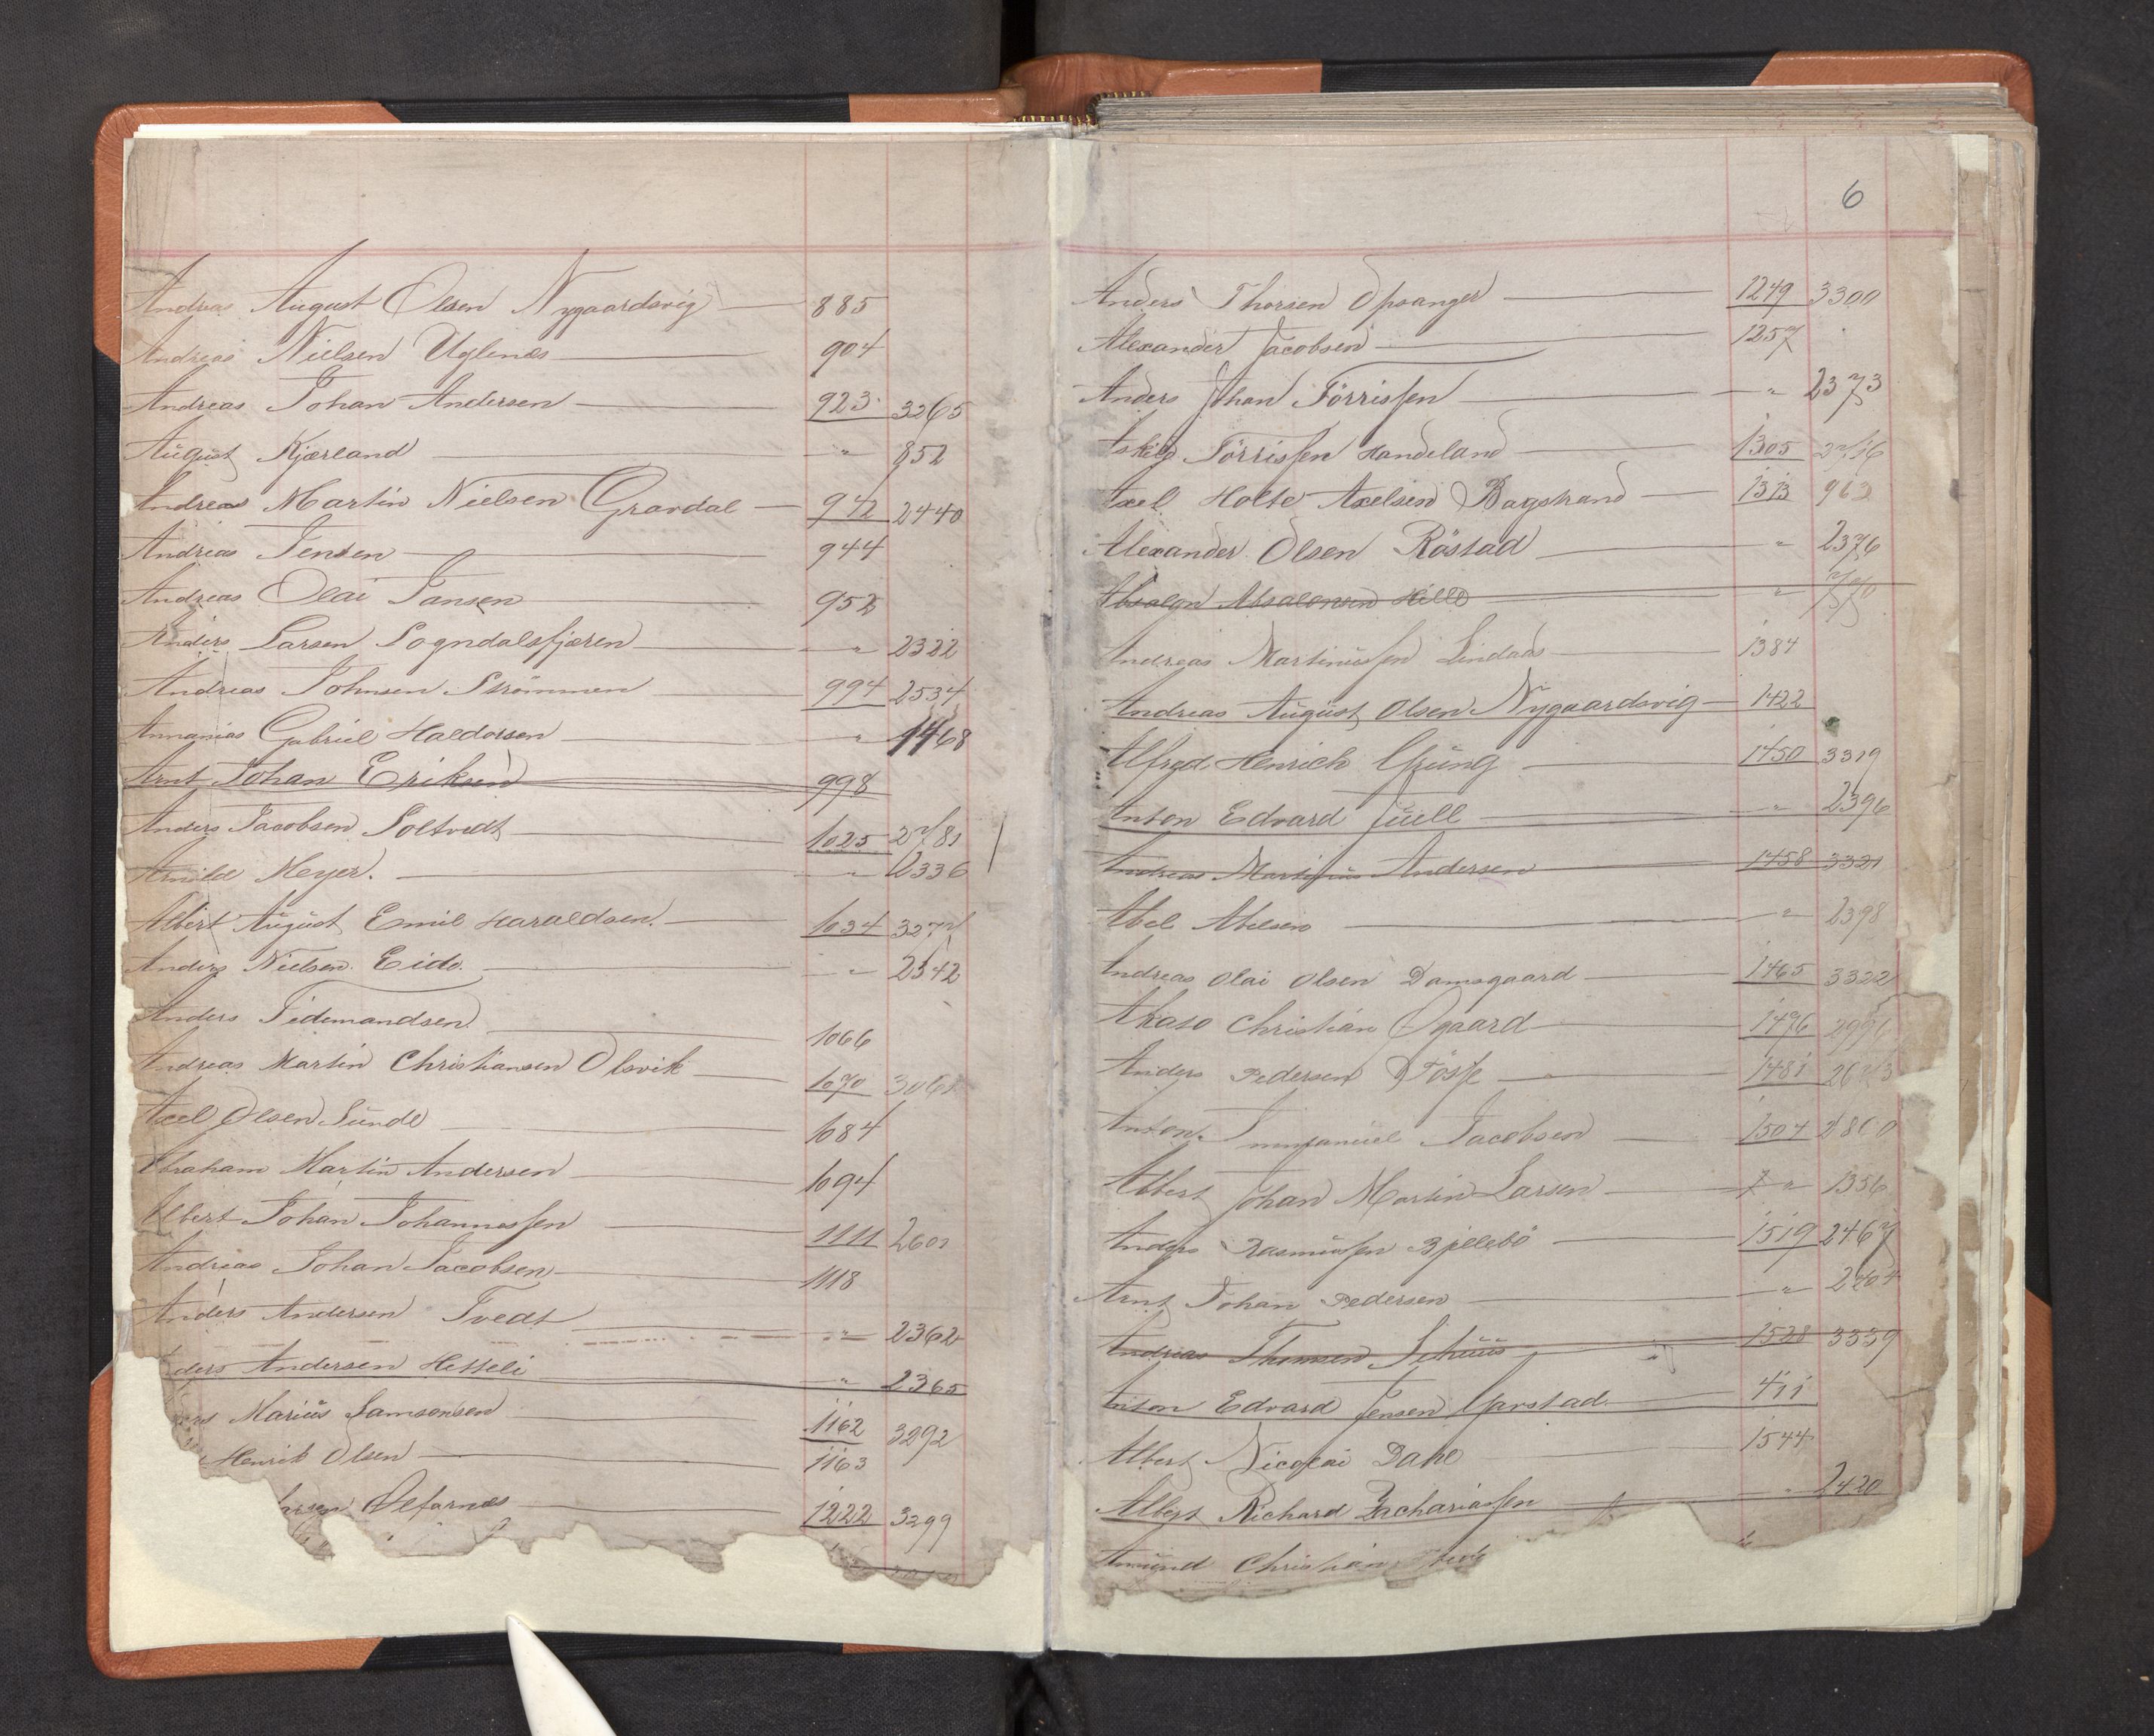 Andreas August Olsen Nygaardsvig 885
Andreas Nielsen Uglenæs 904
Andreas Johan Andersen 923 3265
August Kjærland " 852
Andreas Martin Nielsen Gravdal 942 2440
Andreas Jensen 944
Andreas Olai Jansen 952
Anders Larsen Sogndalsfjæren " 2322
Andreas Johnsen Strømmen 994 2534
Annanias Gabriel Haldorsen " 1468
Arnt Johan Eriksen 998
Anders Jacobsen Soltvedt 1025 2781
Arnilde Meyer. " 2336
Albert August Emil Haraldsen. 1034 3277
Anders Nielsen Eide. " 2342
Anders Tidemandsen 1066
Andreas Martin Christiansen Olsvik 1070 3061
Axel Olsen Sunde 1084
Abraham Martin Andersen 1094
Albert Johan Johannessen 1111 2601
Andreas Johan Jacobsen 1118
Anders Andersen Tvedt " 2362
ders Andersen Hesseli " 2365
Marius Samsonsen 1162 3292
Henrik Olsen 1163
1222 3299
6
Anders Thorsen Opsanger 1249 3300
Alexander Jacobsen 1257
Anders Johan Törrissen " 2373
Askild Törrissen Handeland 1305 2716
Axel Holte Axelsen Bagstrand 1313 963
Alexander Olsen Röstad " 2376
Absalon Absalonsen Hille "
Andreas Martinussen Lindaas 1384
Andreas August Olsen Nygaardsvig 1422
Alfred Henrich Grüng 1450 3319
Anton Edvard Juell " 2396
Andreas Martinus Andersen 1458 3321
Abel Abelsen " 2398
Andreas Olai Olsen Damsgaard 1465 3322
Christian Ogaard 1476
Anders Pedersen 1481
Anton Immanuel Jacobsen 1504 2800
Albert Johan Martin Larsen " 1356
Anders Rasmussen Bjellebö 1519 2467
Arnt Johan Pedersen " 2404
Andreas Thomsen 1528 3339
Anton Edvard Jensen Garstad 411
Albert Nicolai Dahl 1544
Albert Richard Zachariassen " 2420
Amund Christian